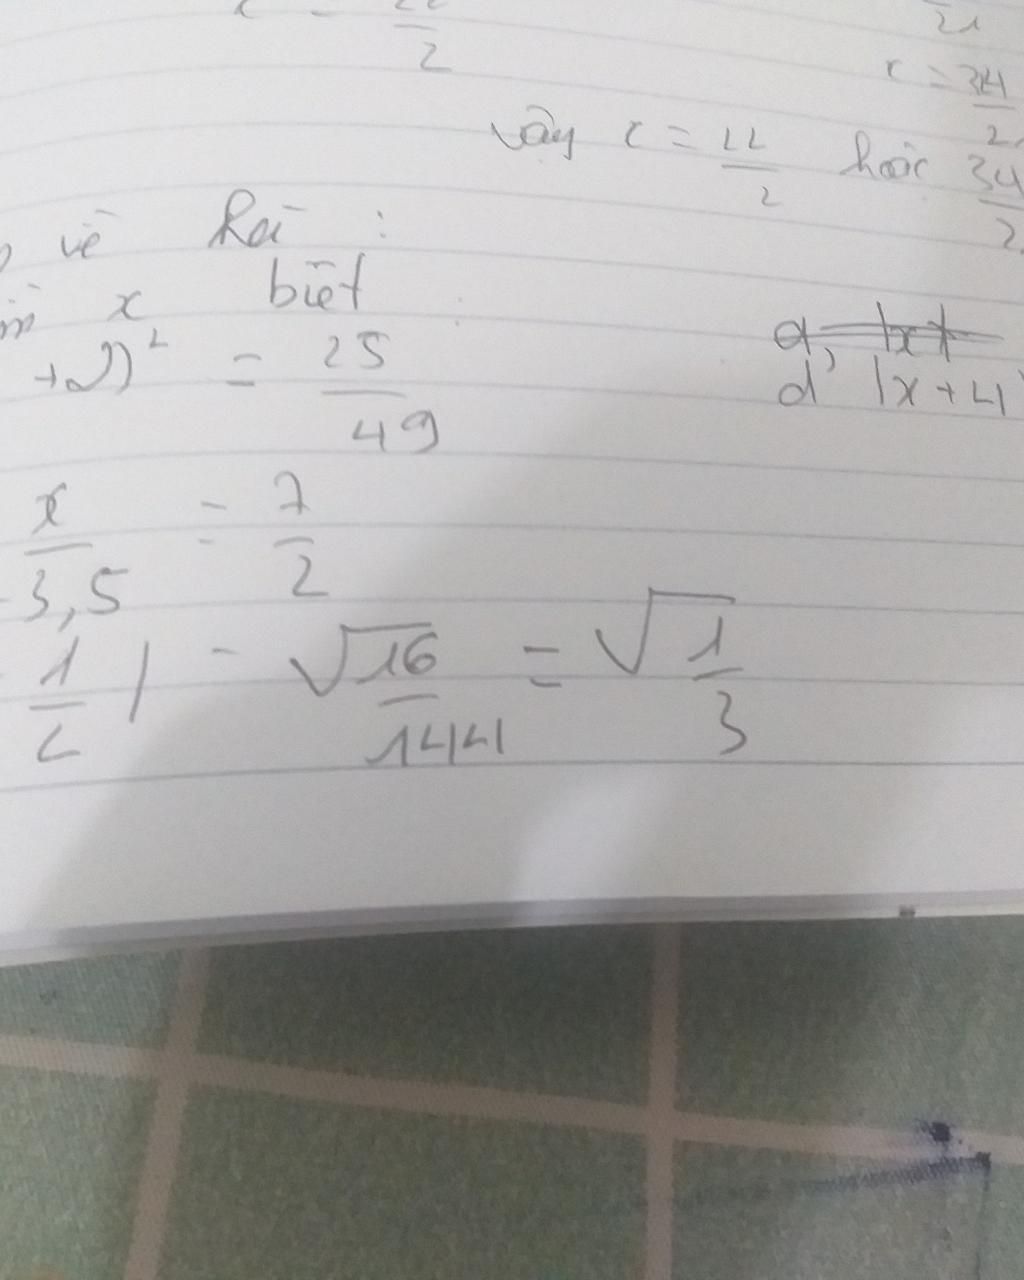 2
21
x = 34
2
Vậy x = 22/2 hoặc 34/2
về hai :
x biết
+2))² = 25/49
d, |x+4|
x/-3,5 = 7/2
1/2 | - √16/144 = √1/3